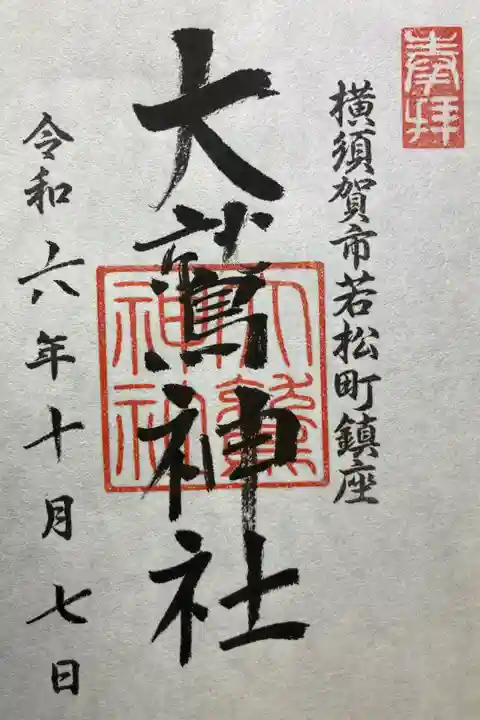 奉拝
横須賀市若松町鎮座
大鷲神社
大鷲神社
令和六年十月七日